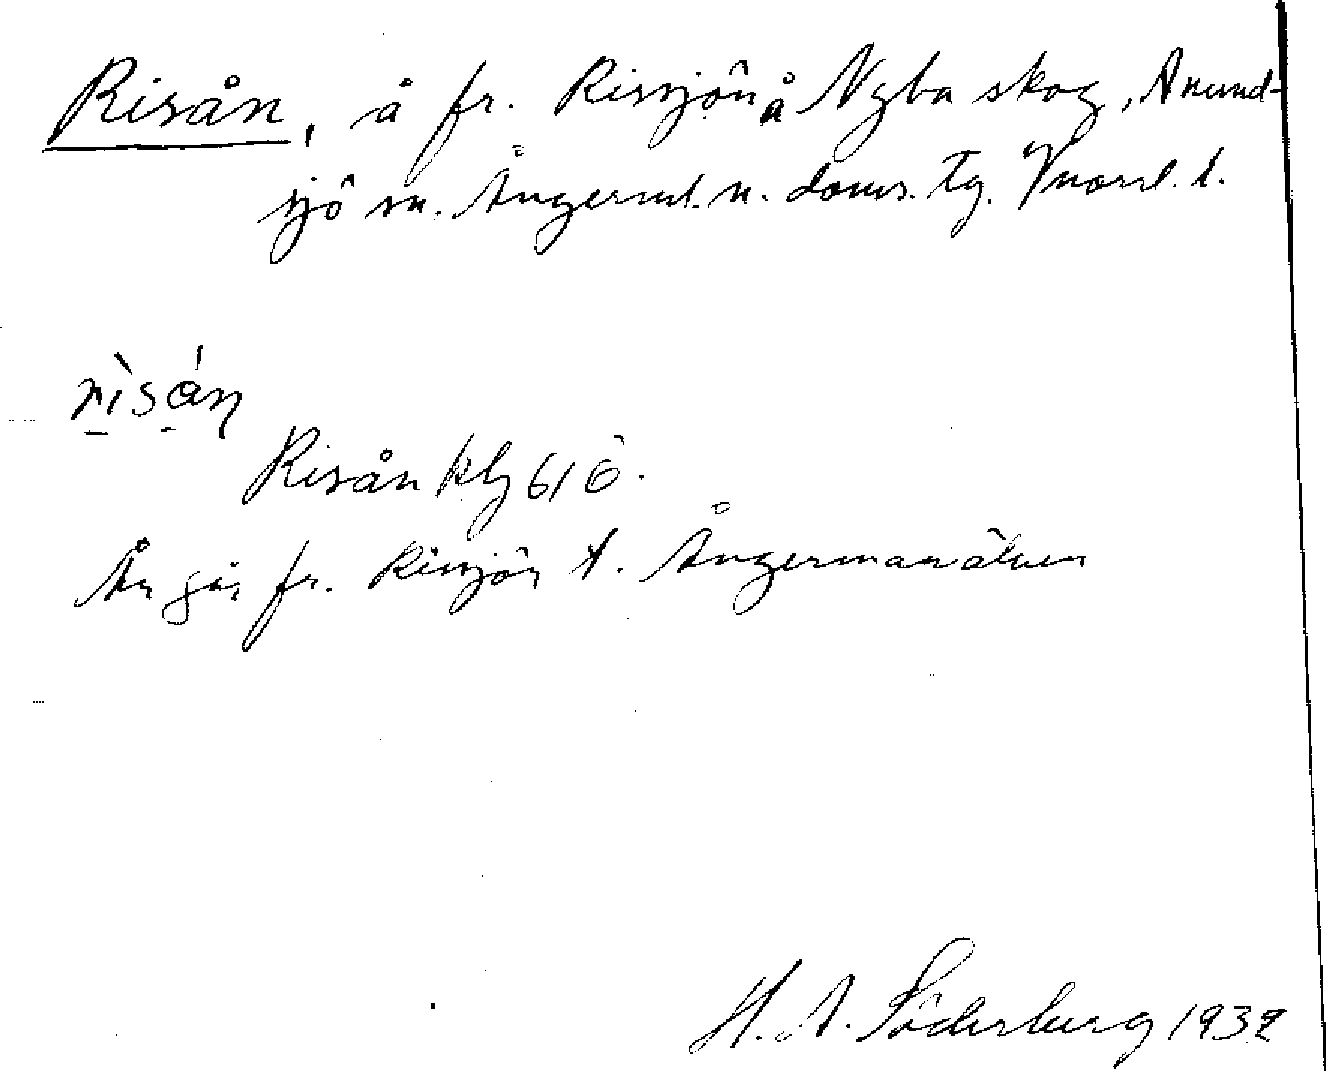 Risån, å fr. Rissjön å Nyba skog, Anund-
sjö sn. Ångerml. n. doms. tg. Vnorrl. l.
rìsán
Risån kbl 61 ö.
Ån går fr. Rissjön t. Ångermanälven
H. A. Söderberg 1932